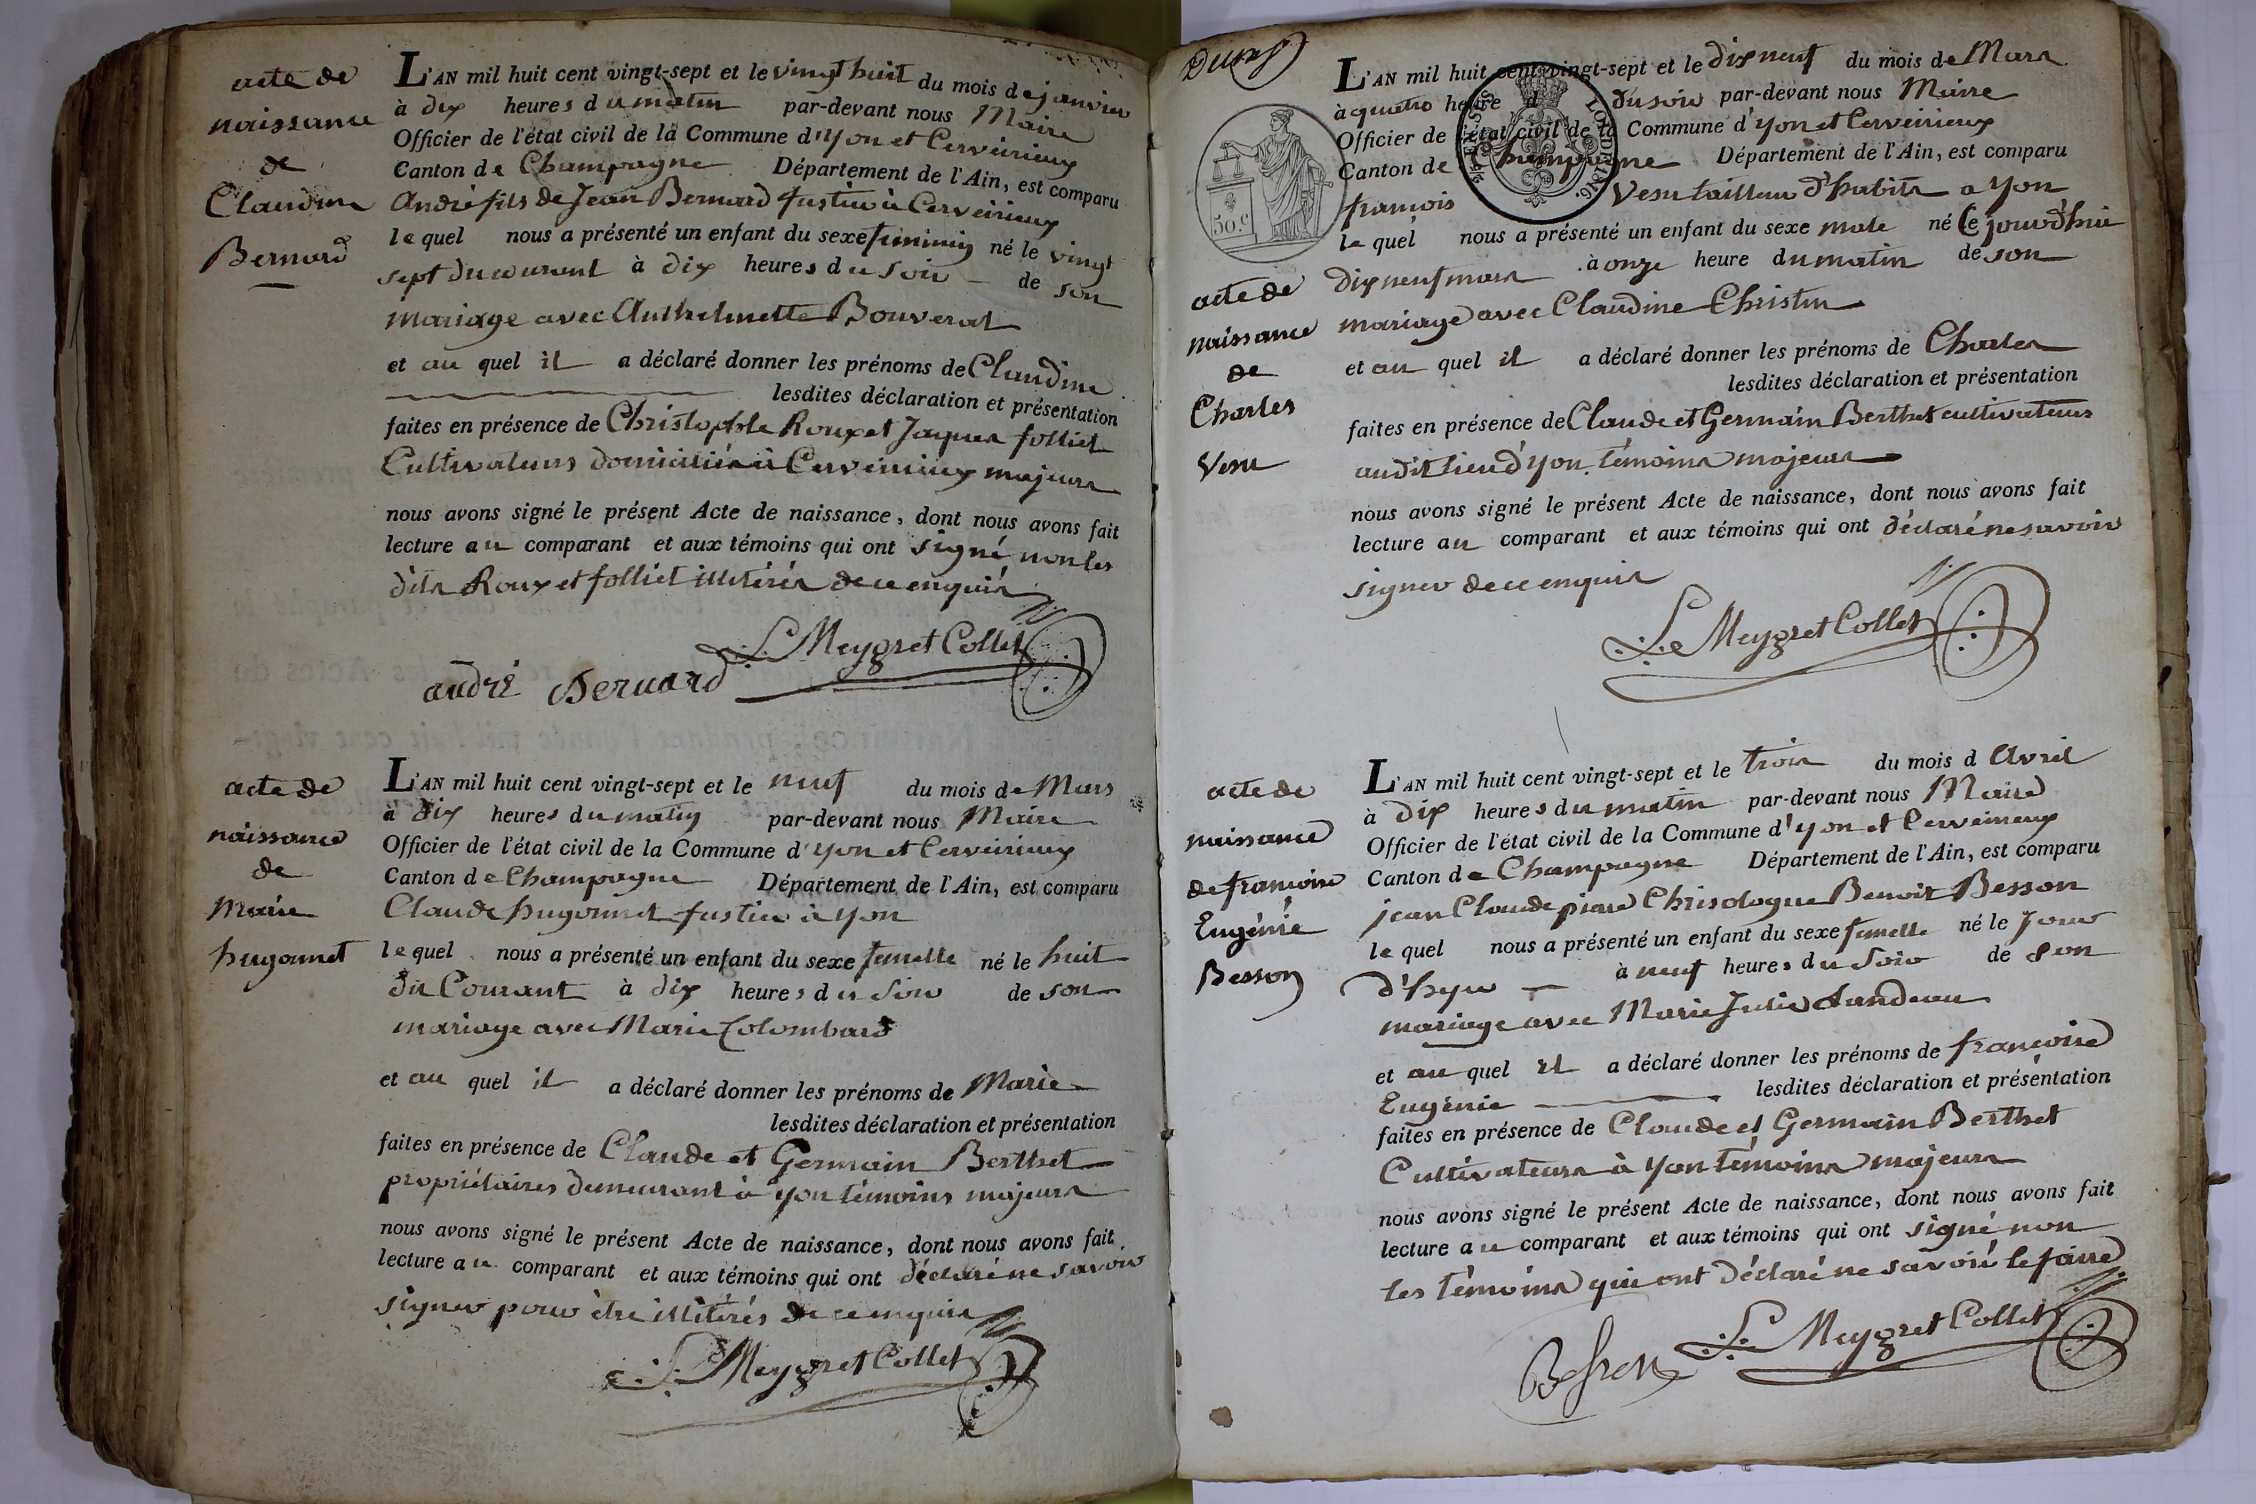 acte de
naissance
de
Claudine
Bernard
L'AN mil huit cent vingt-sept et le vingt huit du mois de janvier
à dix heures du matin par-devant nous Maire
Officier de l'état civil de la Commune d'yon et Cerveirieux
Canton de Champagne Département de l'Ain, est comparu
André fils de Jean Bernard fustier à Cerveirieux
le quel nous a présenté un enfant du sexe feminin né le vingt
sept du courant à dix heures du soir de son
mariage avec Anthelmette Bouverat
et au quel il a déclaré donner les prénoms de Claudine
lesdites déclaration et présentation
faites en présence de Christophle Roux et Jaques folliet
Cultivateurs domiciliés à Cerveirieux majeurs
nous avons signé le présent Acte de naissance, dont nous avons fait
lecture au comparant et aux témoins qui ont signé non les
dits Roux et folliet illitérés de ce enquis
Le Meygret Collet
andré Bernard
acte de
naissance
de
Marie
hugonnet
L'AN mil huit cent vingt-sept et le neuf du mois de Mars
à dix heures du matin par-devant nous Maire
Officier de l'état civil de la Commune d'yon et Cerveirieux
Canton de Champagne Département de l'Ain, est comparu
Claude hugonnet fustier à yon
le quel nous a présenté un enfant du sexe femelle né le huit
du Courant à dix heures du soir de son
mariage avec Marie Colombard
et au quel il a déclaré donner les prénoms de Marie
lesdites déclaration et présentation
faites en présence de Claude et Germain Berthet
propriétaires demeurant à yon témoins majeurs
nous avons signé le présent Acte de naissance, dont nous avons fait
lecture au comparant et aux témoins qui ont déclaré ne savoir
signer pour être illitérés de ce enquis
Le Meygret Collet
Deux
50.c
LOI DE 1816.
acte de
naissance
de
Charles
Vesu
L'AN mil huit cent vingt-sept et le dix neuf du mois de Mars
à quatre heure d du soir par-devant nous Maire
Officier de l'état civil de la Commune d'yon et Cerveirieux
Canton de Champagne Département de l'Ain, est comparu
françois Vesu tailleur d'habits a yon
le quel nous a présenté un enfant du sexe male né Ce jourd'hui
dix neuf mars à onze heure du matin de son
mariage avec Claudine Christin
et au quel il a déclaré donner les prénoms de Charles
lesdites déclaration et présentation
faites en présence de Claude et Germain Berthet cultivateurs
audit lieu d'yon témoins majeurs
nous avons signé le présent Acte de naissance, dont nous avons fait
lecture au comparant et aux témoins qui ont déclaré ne savoir
signer de ce enquis
Le Meygret Collet
acte de
naissance
de françoise
Eugénie
Besson
L'AN mil huit cent vingt-sept et le trois du mois d Avril
à dix heures du matin par-devant nous Maire
Officier de l'état civil de la Commune d'yon et Cerveirieux
Canton de Champagne Département de l'Ain, est comparu
jean Claude piare Chrisologue Benoit Besson
le quel nous a présenté un enfant du sexe femelle né le jour
d'hyer à neuf heures du Soir de son
mariage avec Marie Julie
et au quel il a déclaré donner les prénoms de françoise
Eugénie lesdites déclaration et présentation
faites en présence de Claude et Germain Berthet
Cultivateurs à yon témoins majeurs
nous avons signé le présent Acte de naissance, dont nous avons fait
lecture au comparant et aux témoins qui ont signé non
les témoins qui ont déclaré ne savoir le faire
Le Meygret Collet
Besson